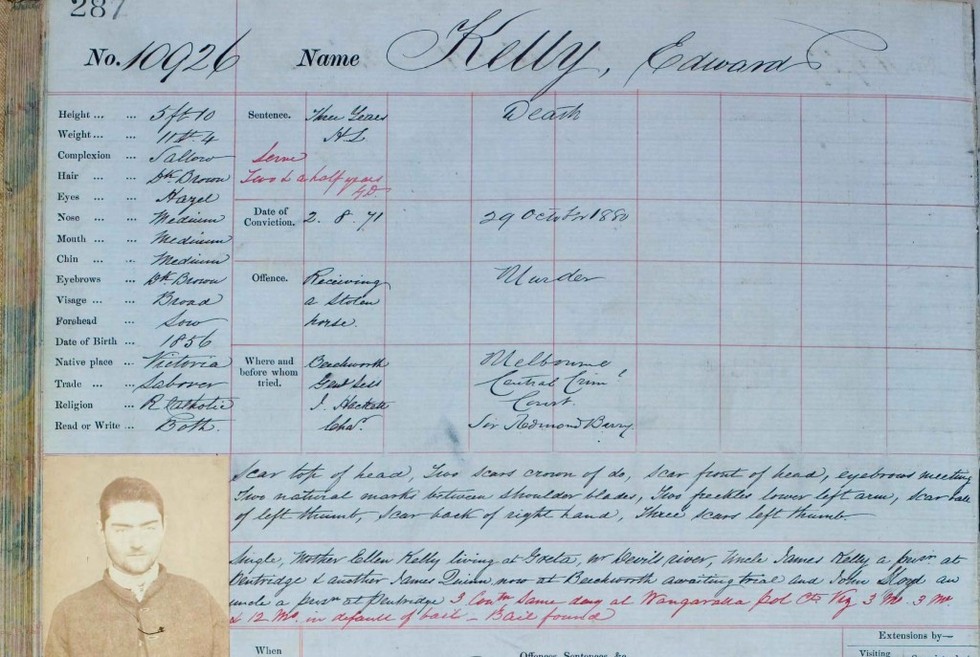 287
No. 10926 Name Kelly, Edward
Height ... ... 5 ft 10
Weight ... ... 11st. 4
Complexion ... Sallow
Hair ... ... Dk Brown
Eyes ... ... Hazel
Nose ... ... Medium
Mouth ... ... Medium
Chin ... ... Medium
Eyebrows ... Dk Brown
Visage ... ... Broad
Forehead ... Low
Date of Birth ... 1856
Native place ... Victoria
Trade ... ... Labourer
Religion ... R Catholic
Read or Write ... Both.
Sentence. Three Years Death
H.L.
Serve
Two & a half years
Date of Conviction. 2. 8. 71 29 October 1880
Offence. Receiving Murder
a stolen
horse.
Where and before whom tried. Beechworth Melbourne
Genl Sess Central Crim'l
J. Hackett Court.
Cha'r. Sir Redmond Barry
Scar top of head, Two scars crown of do, scar front of head, eyebrows meeting
Two natural marks between shoulder blades, Two freckles lower left arm, scar
of left thumb, Scar back of right hand, Three scars left thumb.
Single, Mother Ellen Kelly living at Greta, nr Devils river, Uncle James Kelly a prisr at
Pentridge & another James Quinn now at Beechworth awaiting trial and John Lloyd an
uncle a prisr at Pentridge 3 Con'ns same day at Wangaratta Pol Ct. Viz 3 Mo. 3 Mo.
& 12 Mos. in default of bail – Bail found
When
Offences, Sentences, &c.
Extensions by—
Visiting